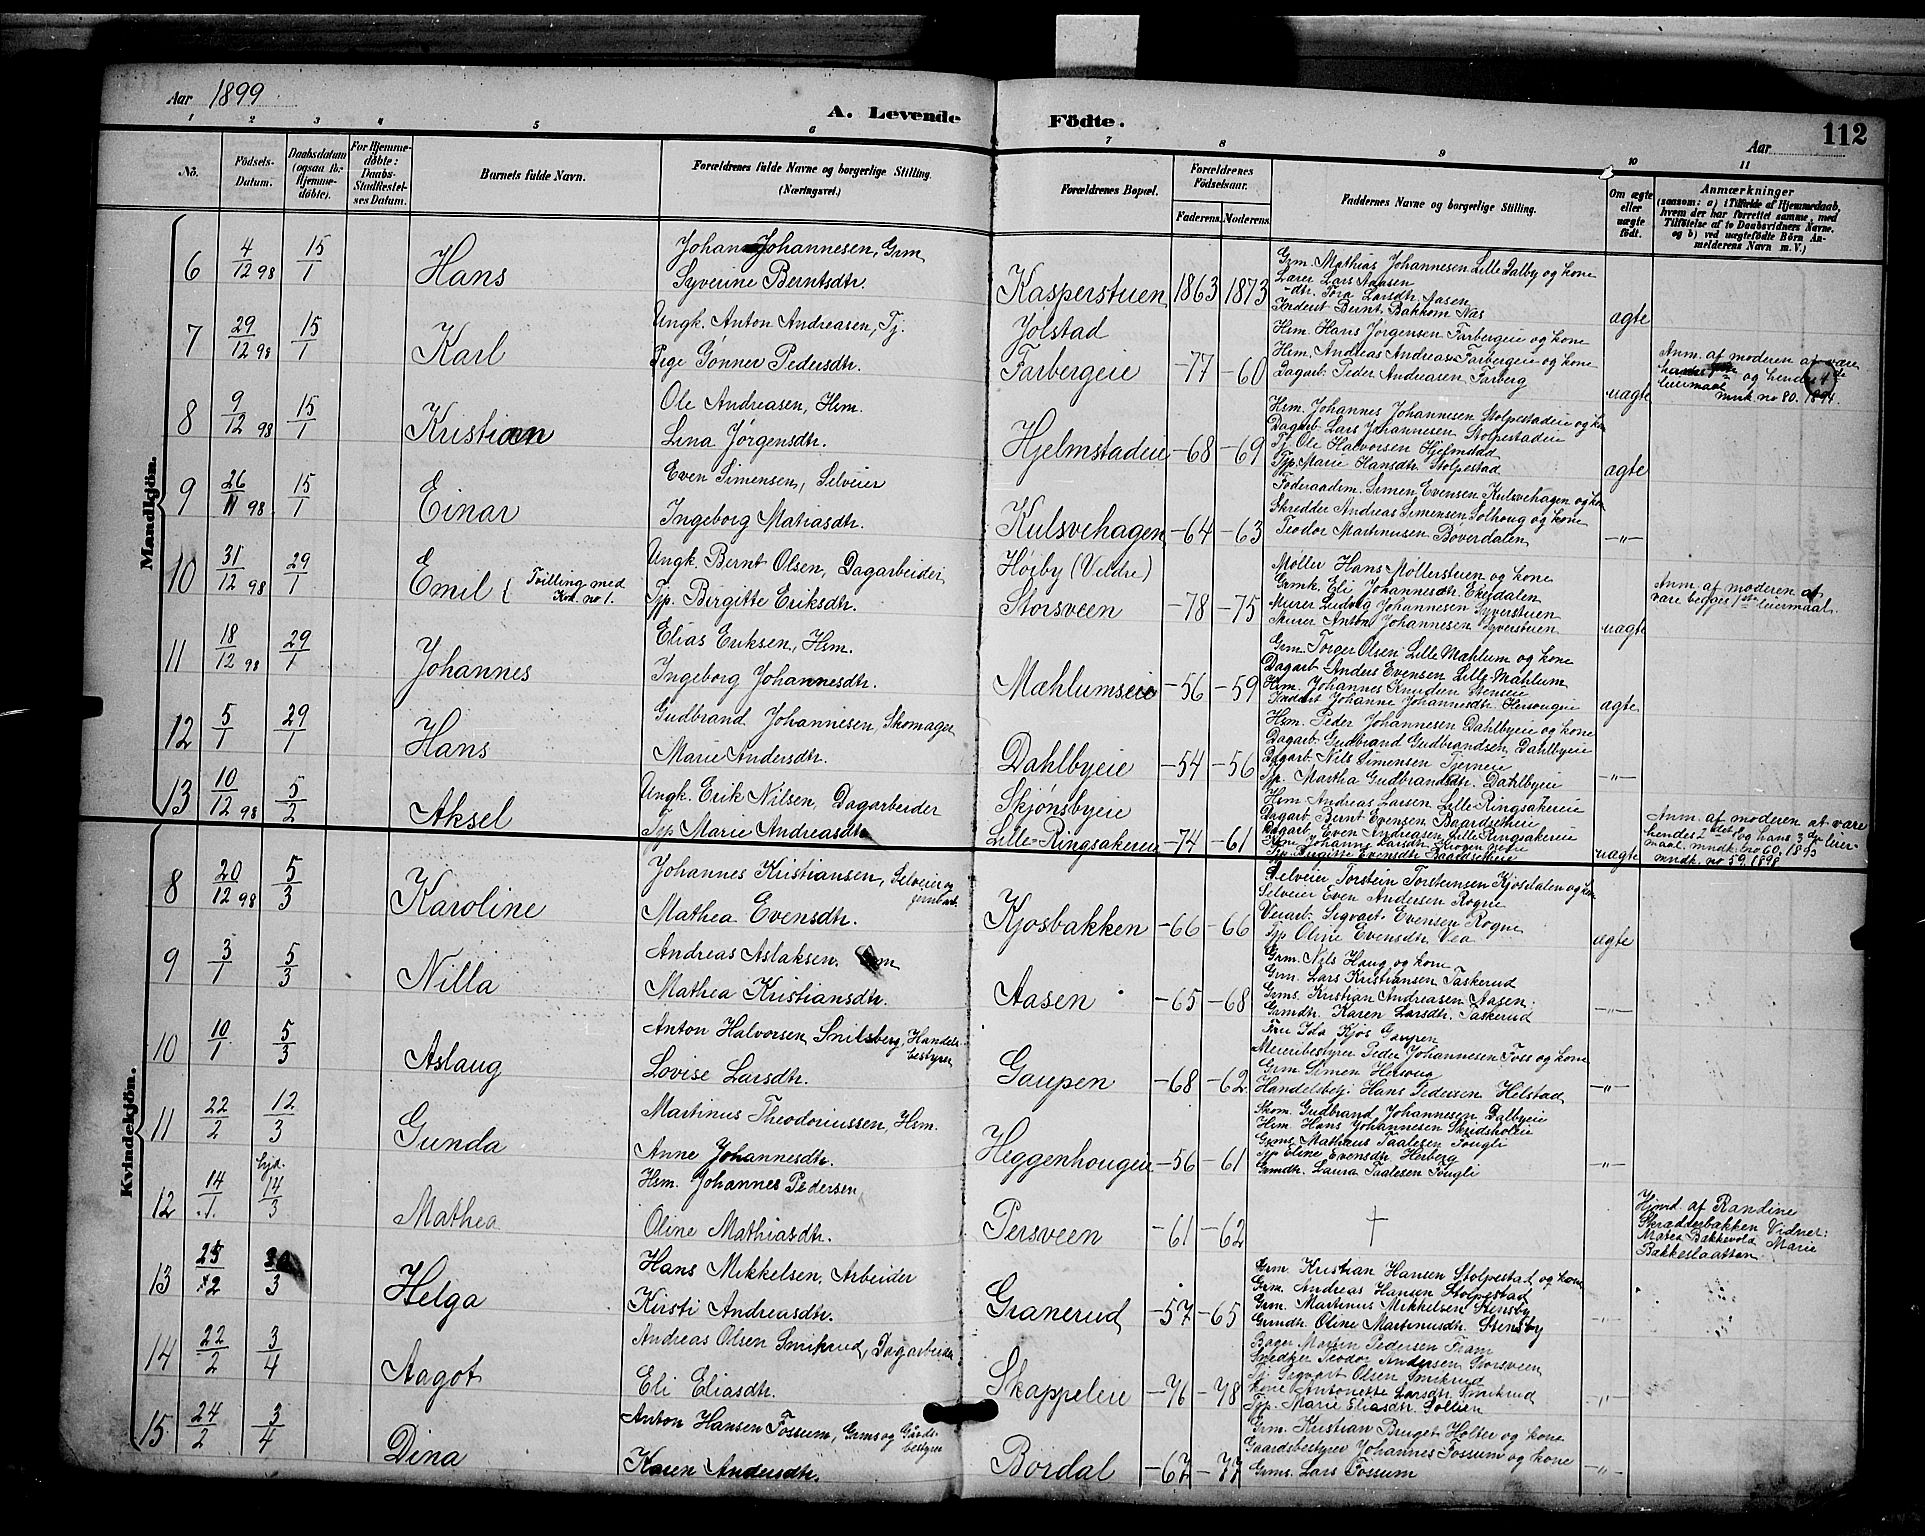 Aar 1899
A. Levende Födte.
112
Aar
1 2 3 4 5 6 7 8 9 10 11
No.
Födsels-Datum.
Daabsdatum (ogsaa for Hjemmedöbte).
For Hjemmedöbte: Daabs-Stadfæstelses Datum.
Barnets fulde Navn.
Forældrenes fulde Navne og borgerlige Stilling. (Næringsvei.)
Forældrenes Bopæl.
Forældrenes Födselsaar.
Faderens. Moderens.
Faddernes Navne og borgerlige Stilling.
Om ægte eller uægte födt.
Anmærkninger (saasom: a) i Tilfælde af Hjemmedaab, hvem der har forrettet samme, med Tilföielse af to Daabsvidners Navne. og b) ved uægtefödte Börn Anmelderens Navn m. V.)
Mandkjön.
6 4/12 98 15/1 Hans
Johan Johannesen, Grm
Syverine Berntsdtr.
Kasperstuen 1863 1873
Grm. Mathias Johannesen Lille Dalby og kone
Lærer Lars Aasen
-dtr. Tora Larsdtr. Aasen
Inderst Bernt Bakkom Næs
ægte
7 29/12 98 15/1 Karl
Ungk. Anton Andreasen, Tj.
Pige Gønner Pedersdtr.
Jølstad
Farbergeie -77 -60
Hsm. Hans Jørgensen Farbergeie og kone
Hsm. Andreas Andreas Farbergeie og kone
Dagarb. Peder Andreasen Farberg
uægte
Anm. af moderen at være
og hendes 4de
leiermaal
mnk. no 80. 1894.
8 9/12 98 15/1 Kristian
Ole Andreasen, Hsm.
Lina Jørgensdtr.
Hjelmstadeie -68 -69
Hsm. Johannes Johannesen Stolpestadeie og kone
Dagarb. Lars Johannesen Stolpestadeie
Tj. Ole Halvorsen Hjelmstad
Tjp. Marie Hansdtr. Stolpestad
ægte
9 26/11 98 15/1 Einar
Even Simensen, Selveier
Ingeborg Matiasdtr.
Kulsvehagen -64 -63
Føderaadsm. Simen Evensen Kulsvehagen og kone
Skredder Andreas Simensen Solhoug og kone
Teodor Martinusen Bøverdalen
-"-
10 31/12 98 29/1 Emil { Tvilling med Kvk. no 1.
Ungk. Bernt Olsen, Dagarbeider
Tjp. Birgitte Eriksdtr.
Høiby (Veldre)
Storsveen -78 -75
Møller Hans Møllerstuen og kone
Grmk. Eli Johannesdtr. Ekerdalen
Murer Ludvig Johannesen Syverstuen
Murer Anton Johannesen Syverstuen
uægte
Anm. af moderen at
være begges 1ste leiermaal.
11 18/12 98 29/1 Johannes
Elias Eriksen, Hsm.
Ingeborg Johannesdtr.
Mæhlumseie -56 -59
Grm. Torger Olsen Lille Mæhlum og kone
Dagarb. Anders Evensen Lille Mæhlum
Hsm. Johannes Knudsen Stenseie
Inderst Johanne Johannesdtr. Hersougeie
ægte
12 5/1 29/1 Hans
Gudbrand Johannesen, Skomager
Marie Andersdtr.
Dahlbyeie -54 -56
Hsm. Peder Johannesen Dahlbyeie og kone
Dagarb. Gudbrand Gudbrandsen Dahlbyeie
Dagarb. Nils Simensen Tjerneie
Tjp. Martha Gudbrandsdtr. Dahlbyeie
-"-
13 10/12 98 5/2 Aksel
Ungk. Erik Nilsen, Dagarbeider
Tjp Marie Andreasdtr
Skjønsbyeie
Lille-Ringsakereie -74 -61
Hsm Andreas Larsen Lille-Ringsakereie
Dagarb Bernt Evensen Baardseteie
Dagarb. Even Andreasen Lille Ringsakereie
Johanne Larsdtr. Krogen nedre
Evensdtr Baardseteie
uægte
Anm. af moderen at være
hendes 2det og hans 3die leiermaal. mndk. no 60. 1895
mndk. no 59, 1898
Kvindekjön.
8 20/12 98 5/3 Karoline
Johannes Kristiansen, Selveier og jernb.arb.
Mathea Evensdtr.
Kjosbakken -66 -66
Selveier Torstein Torsteinsen Kjosdalen og kone
Selveier Even Andersen Rogne
Veiarb. Sigvart Evensen Rogne
Tjp Oline Evensdtr. Vea
ægte
9 3/1 5/3 Nilla
Andreas Aslaksen. Grm
Mathea Kristiansdtr.
Aasen -65 -68
Grm. Nils Haug og kone
Grm. Lars Kristiansen Taskerud
Grms. Kristian Andreasen Aasen.
Grmdtr. Karen Larsdtr. Taskerud
-"-
10 10/1 5/3 Aslaug
Anton Halvorsen Snilsberg, Handelsbestyrer
Lovise Larsdtr.
Gaupen -68 -62
Fru Ida Kjos Gaupen
Meieribestyrer Peder Johannesen Foss og kone
Grm. Simen Hersoug
Handelsbetj. Hans Pedersen Helstad
-"-
11 22/2 12/3 Gunda
Martinus Theodoriussen, Hsm.
Anne Johannesdtr.
Heggenhougeie -56 -61
Skom. Gudbrand Johannesen Dalbyeie
Hsm. Hans Johannesen Skridsholeie
Grms Mathæus Taalesen Fougli
Tjp Eline Evensdtr Herberg
Grmdtr. Laura Taalesen Fougli
-"-
12 14/1 hjd. 14/3 Mathea
Hsm. Johannes Pedersen
Oline Mathiasdtr.
Persveen -61 -62
†
Hjmd. af Randine
Skrædderbakken Vidner:
Matea Bakkevold Marie
Bakkeslaatten
13 25/12 /3 Helga
Hans Mikkelsen, Arbeider
Kirsti Andreasdtr.
Granerud -57 -65
Grm. Kristian Hansen Stolpestad og kone
Grm. Andreas Hansen Stolpestad
Grm. Martinus Mikkelsen Stensby
Grmdtr. Oline Martinusdtr. Stensby
-"-
14 22/2 3/4 Aagot
Andreas Olsen Smikrud, Dagarbeider
Eli Eliasdtr.
Skappeleie -76 -78
Bager Morten Pedersen Fram
Skredker Teodor Andersen Storsveen
Tj. Sigvart Olsen Smikrud
Kone Antonette Larsdtr. Smikrud
Tjp. Marie Eliasdtr.
-"-
15 24/2 3/4 Dina
Anton Hansen Fossum, Grms og Gårdsbestyrer
Karen Andersdtr.
Bordal -67 -77
Grm. Kristian Bruget Holter og kone
Gaardsbestyrer Johannes Fossum og kone
Grms. Lars Fossum
-"-